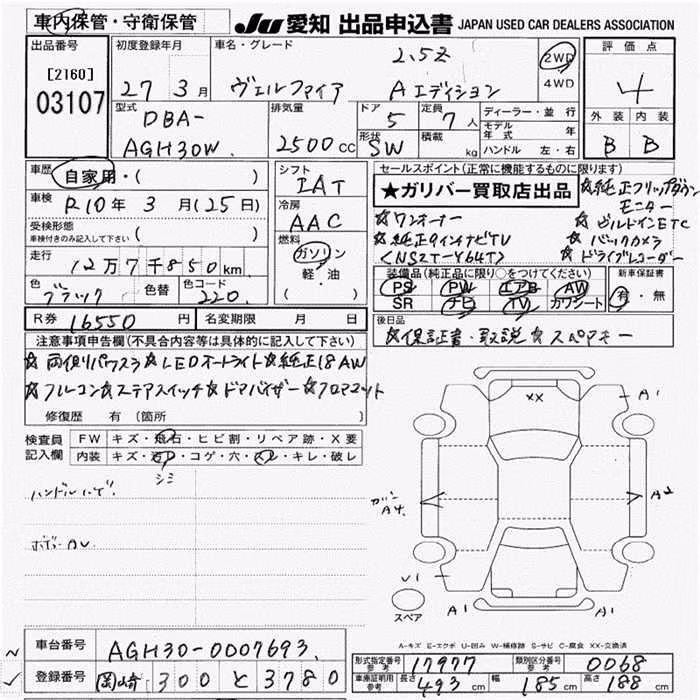 車内保管・守衛保管
JU 愛知 出品申込書 JAPAN USED CAR DEALERS ASSOCIATION
出品番号 [2160] 03107
初度登録年月 27 3月
車名・グレード 2.5Z
ヴェルファイア Aエディション
2WD
4WD
評価点 4
外装 内装
B B
型式 DBA-
AGH30W
排気量 2500cc
ドア 5
定員 7人
形状 SW
積載 kg
ディーラー・並行
モデル年式 年
ハンドル 左・右
車歴 自家用・( )
車検 R10年 3月(25日)
受検形態
車検付きのみ記入して下さい ( )
走行 12万7千850km
色 ブラック 色替 色コード 220
シフト IAT
冷房 AAC
燃料 ガソリン
軽・油
( )
セールスポイント(正常に機能するものに限ります)
★ガリバー買取店出品
☆純正フリップダウン
モニター
☆ワンオーナー ☆ビルドインETC
☆純正9インチナビTV ☆バックカメラ
(NSZT-Y64T) ☆ドライブレコーダー
装備品(純正品に限り○をつけてください)
PS PW エアB AW
SR ナビ TV カワシート
新車保証書
有・無
R券 16550円
名変期限 月 日
後日品
☆保証書・取説 ☆スペアキー
注意事項申告欄(不具合内容等は具体的に記入して下さい)
☆両側パワスラ ☆LEDオートライト ☆純正18AW
☆フルコン ☆ステアスイッチ ☆ドアバイザー ☆フロアマット
修復歴 有 (箇所 )
検査員記入欄
FW キズ・飛石・ヒビ割・リペア跡・X要
内装 キズ・コゲ・穴・・キレ・破レ
シミ
XX
A1
A2
A4
U1
A1 A1
スペア
A-キズ E-エクボ U-凹み W-補修跡 S-サビ C-腐食 XX-交換済
車台番号 AGH30-0007693
登録番号 岡崎 300 と 3780
形式指定番号 参考 17977
類別区分番号 参考 0068
車庫証明用 参考 長さ 493cm 幅 185cm 高さ 188cm